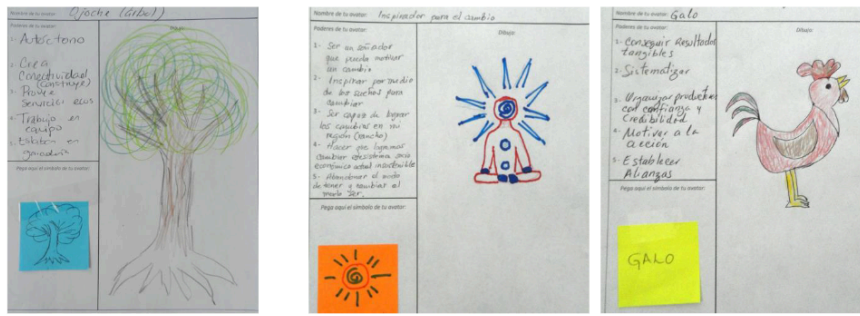 Nombre de tu avatar: Ojoche (Árbol)
Poderes de tu avatar:
Dibujo:
1- Autóctono
2- Crea
conectividad
(construye)
3- Provee
Servicios
4- Trabaja en
equipo
5-
Pega aqui el símbolo de tu avatar:
Nombre de tu avatar: Inspirador para el cambio
Poderes de tu avatar:
Dibujo:
1- Ser un soñador
que pueda motivar
un cambio
2- Inspirar por medio
de los sueños para
cambiar
3- Ser capaz de lograr
los cambios en su
región (rancho)
4- Hacer que logremos
cambiar
económico actual insostenible
5- Abandonar el modo
de tener y cambiar al
modo Ser.
Pega aqui el símbolo de tu avatar:
Nombre de tu avatar: Galo
Poderes de tu avatar:
Dibujo:
1- Conseguir Resultados
tangibles
2- Sistematizar
3- Organizar productores
con confianza y
Credibilidad
4- Motivar a la
acción
5- Establecer
Alianzas
Pega aqui el símbolo de tu avatar:
GALO